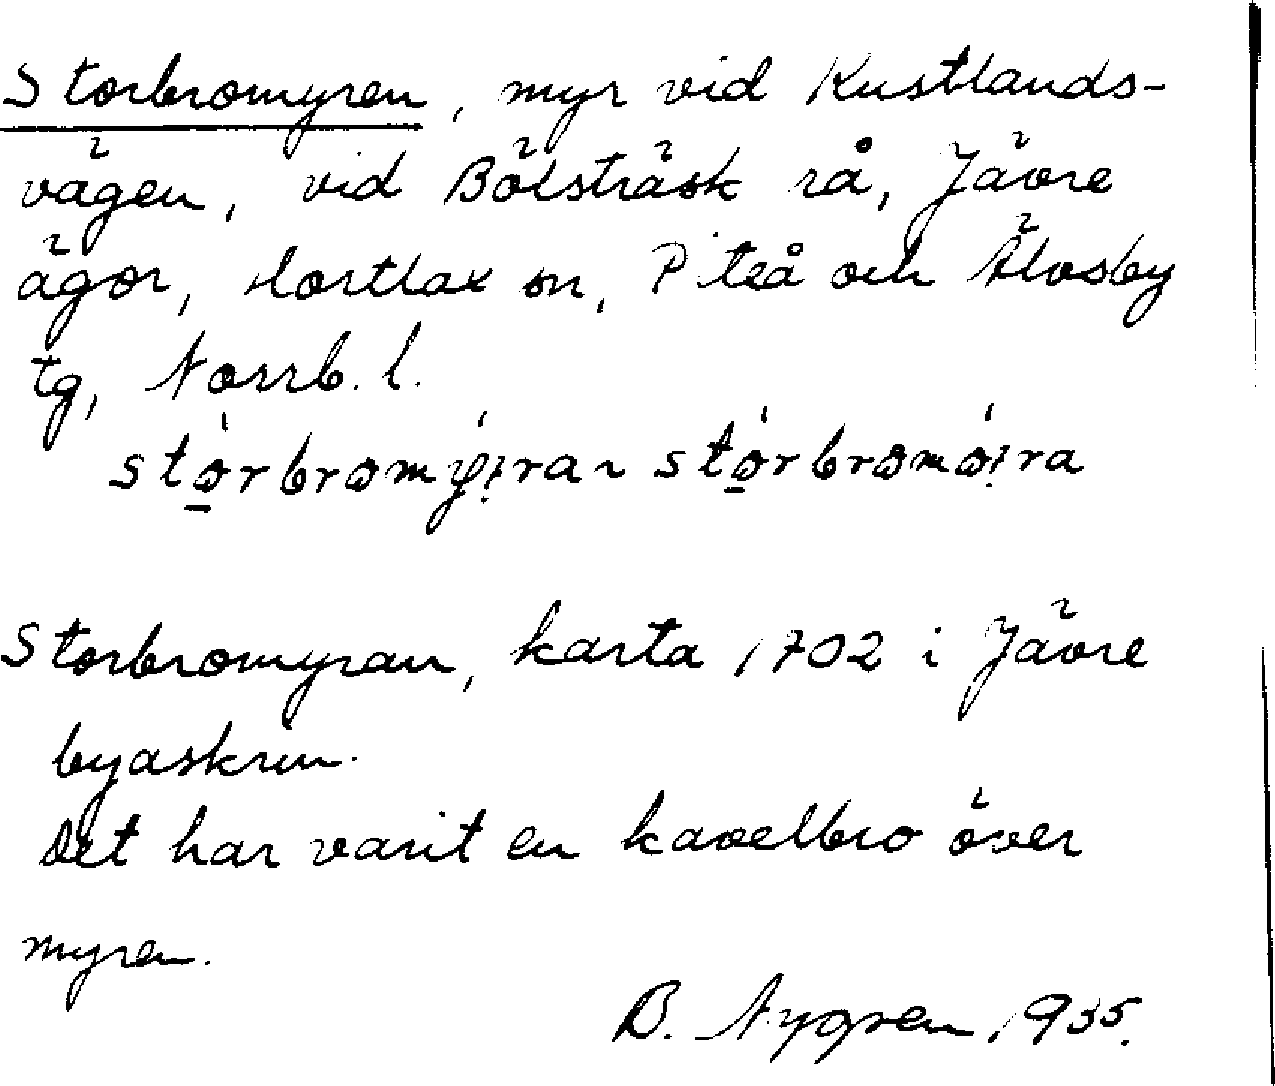 Storbromyren, myr vid Kustlands-
vägen, vid Bölsträsk rå, Jävre
ägor, Hortlax sn, Piteå och Älvsby
tg, Norrb. l.
sto̱rbromý:ra ~ sto̱rbromö́:ra
Storbromyran, karta 1702 i Jävre
byaskrin.
Det har varit en kavelbro över
myren.
B. Nygren 1935.